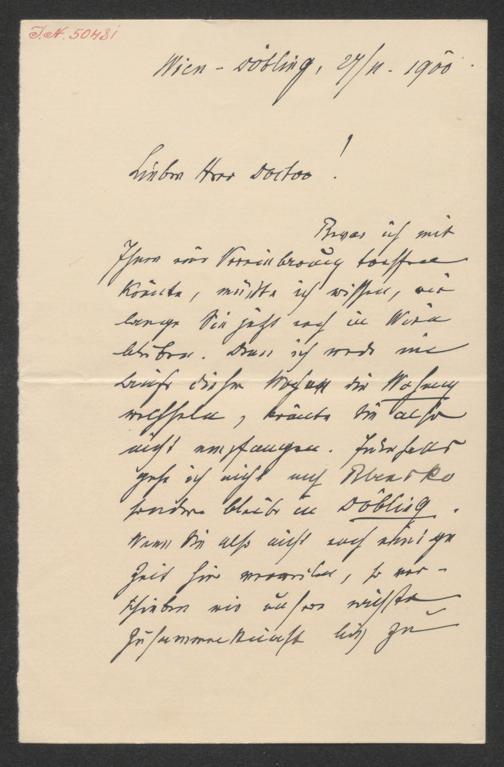 J.N. 50481
Wien – Döbling, 27/11. 1900.
Lieber Herr Doctor!
Bevor ich mit
Ihnen eine Vereinbarung treffen
könnte, müßte ich wissen, wie
lange Sie jetzt noch in Wien
bleiben. Denn ich werde im
Laufe dieser Wochen die Wohnung
wechseln, könnte Sie also
nicht empfangen. Jedenfalls
gehe ich nicht nach
sondern bleibe in Döbling.
Wenn Sie also nicht noch einige
Zeit hier verweilen, so ver-
schieben wir unsere nächste
Zusammenkunft bis zu